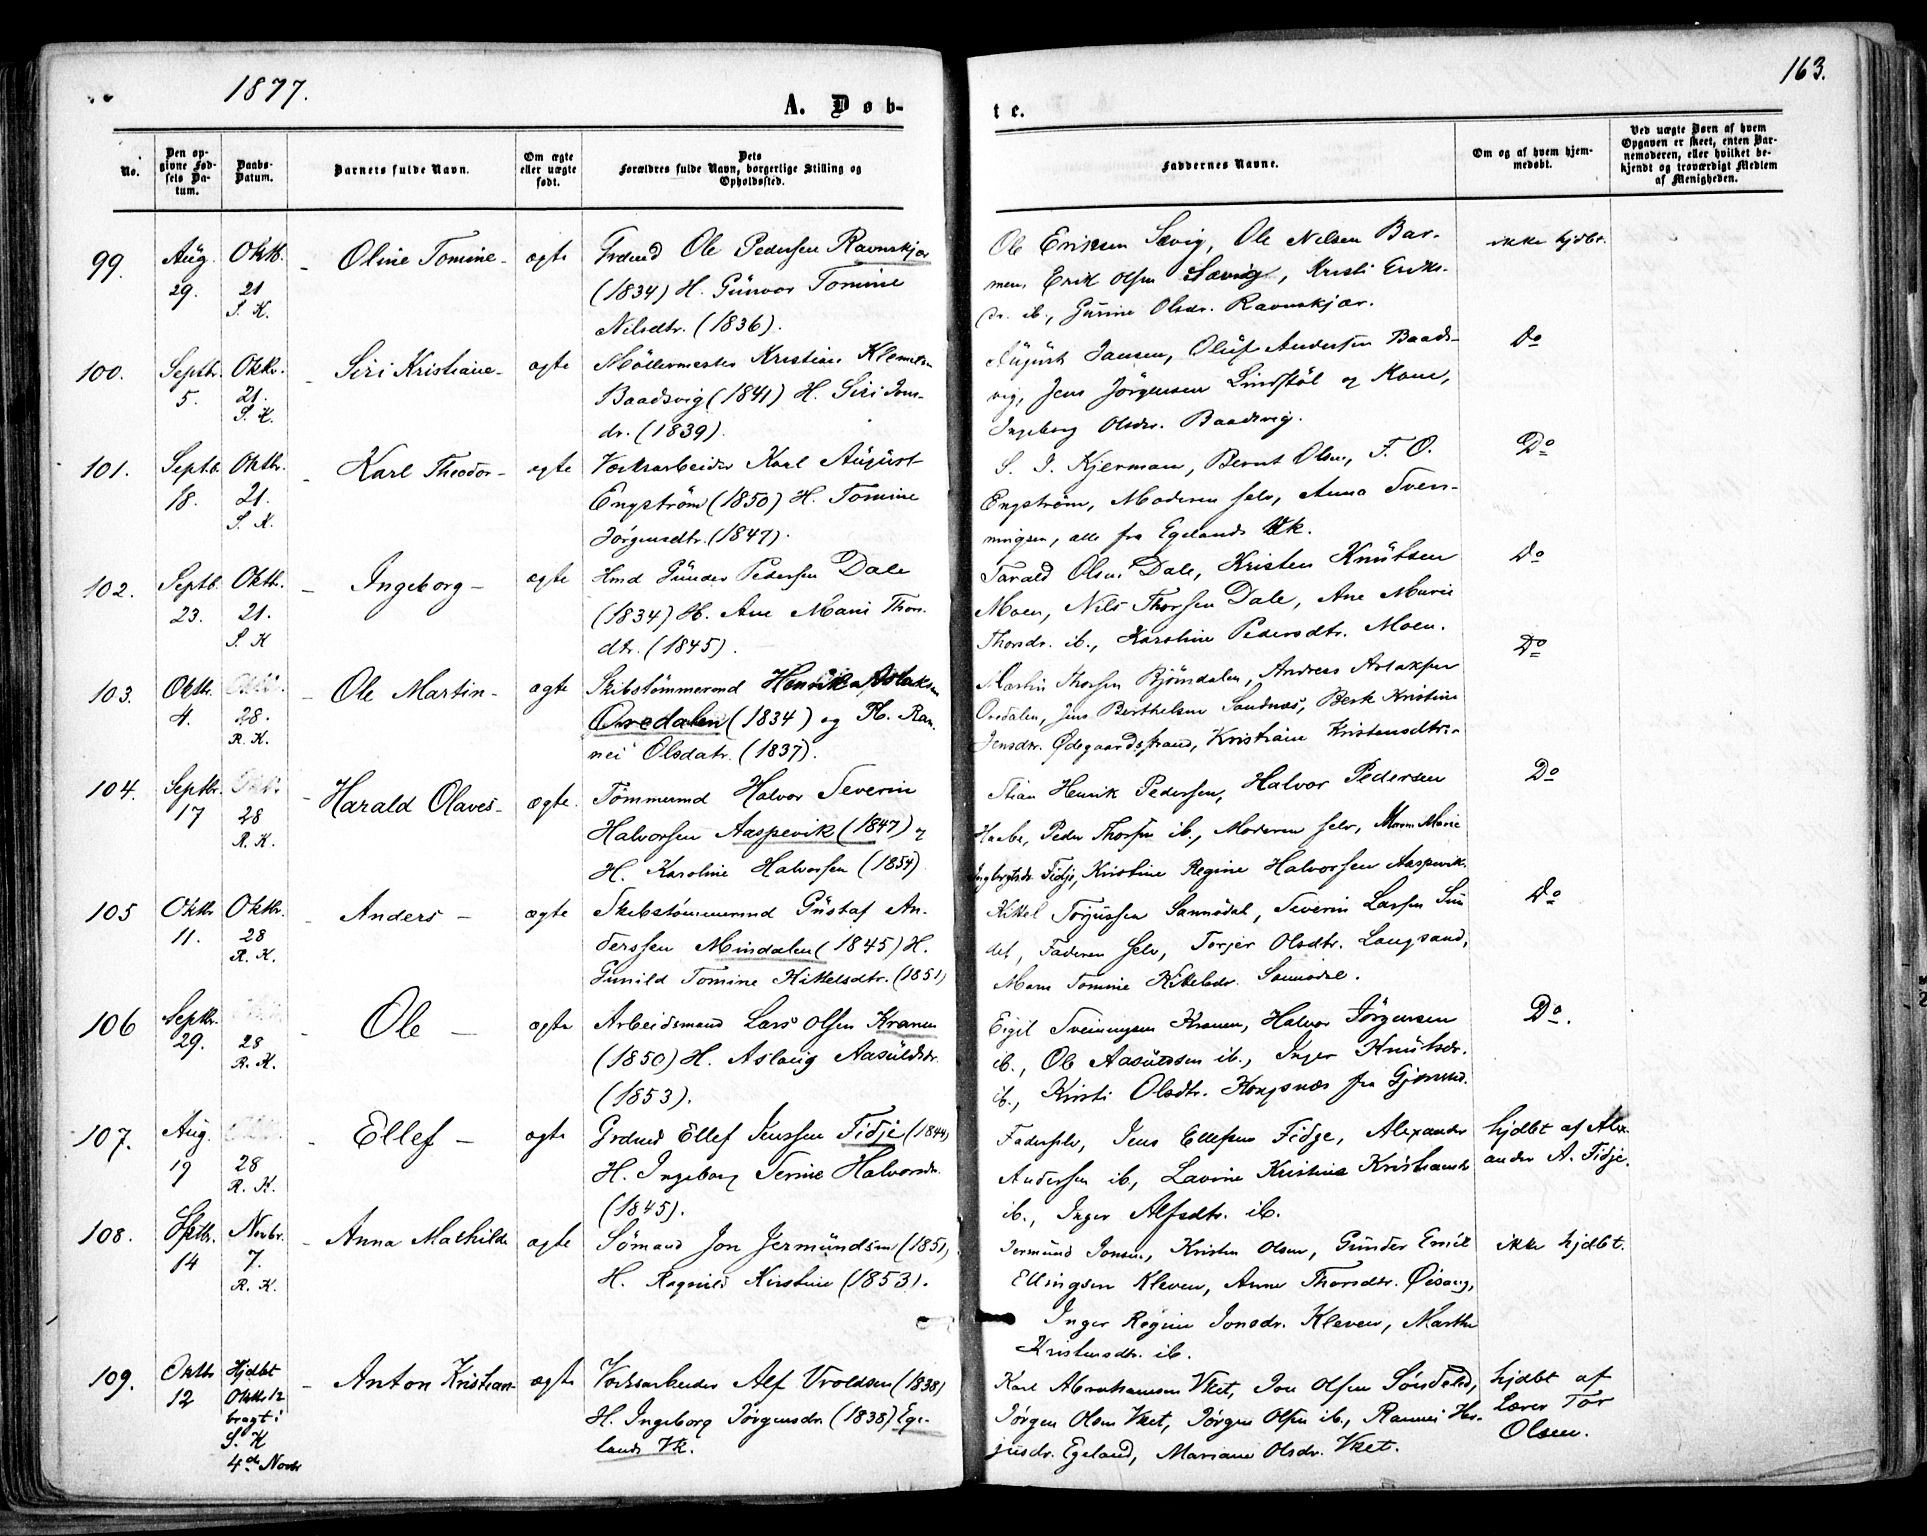 1877.
163.
A. Døb-
te.
No.
Den op-
givne Fød-
sels Da-
tum.
Daabs-
Datum.
Barnets fulde Navn.
Om ægte
eller uægte
født.
Dets
Forældres fulde Navn, borgerlige Stilling og
Opholdssted.
Faddernes Navne.
Om og af hvem hjem-
medøbt.
Ved uægte Børn af hvem
Opgaven er skeet, enten Bar-
nemoderen, eller hvilket be-
kjendt og troværdigt Medlem
af Menigheden.
99. Aug. 29. Oktb. 21 S. K. Oline Tomine - ægte
Grdmd Ole Pedersen Ravnskjær
(1834) H. Gunvor Tomine
Nilsdtr. (1836).
Ole Eriksen Sævig, Ole Nilsen Bar-
men, Erik Olsen Sævig, Kristi Eriks-
dr. ib., Gurine Olsdr. Ravnskjær.
ikke hjdbt.
100. Septbr. 5. Oktbr. 21. S. K. Siri Kristiane - ægte
Møllermester Kristian Klemetsen
Baadsvig (1841) H. Siri Jens-
dr. (1839).
August Jansen, Oluf Andersen Baads-
vig, Jens Jörgensen Lindstøl og Kone,
Ingeborg Olsdr. Baadsvig.
Do
101. Septb. 18. Oktbr. 21. S. K. Karl Theodor - ægte
Værksarbeider Karl August
Engström (1850) H. Tomine
Jörgensdtr. (1847).
S. J. Kjerman, Bernt Olsen, F. O.
Engström, Moderen selv, Anna Sven-
ningsen, alle fra Egelands Vk.
Do
102. Septb. 23. Oktbr. 21. S. K Ingeborg - ægte
Hmd Gunder Pedersen Dale
(1834) H. Ane Marie Thors-
dtr. (1845).
Tarald Olsen Dale, Kristen Knutsen
Moen, Nils Thorsen Dale, Ane Marie
Thorsdr. ib., Karoline Pedersdtr. Moen.
Do
103. Oktbr. 4. 28. R. K. Ole Martin - ægte
Skibstømmermd Henrik Aslaksen
Ovedalen (1834) og H. Ran-
nei Olsdatr. (1837).
Martin Thorsen Bjömdalen, Andreas Aslaksen
Ovedalen, Jens Berthelsen Sandnæs, Berte Kristine
Jensdtr. Ødegaardsstrand, Kristiane Kristensdtr.
104. Septbr. 17 28 R. K. Harald Olaves - ægte.
Tømmermd Halvor Severin
Halvorsen Aaspevik (1847) og
H. Karoline Halvorsen (1854)
Stian Henrik Pedersen, Halvor Pedersen
Haabe, Peder Thorsen ib., Moderen selv, Maren Marie
Ingbrgtsdr. Fidje, Kristine Regine Halvorsen Aaspevik.
Do
105 Oktbr 11. Oktbr. 28 R. K. Anders - ægte
Skibstömmermd Gustaf An-
derssen Mindalen (1845) H.
Gunild Tomine Kittelsdtr. (1851)
Kittel Torjussen Sannödal, Severin Larsen Sun
det, Faderen selv, Torjer Olsdtr. Langsand,
Maren Tomine Kittelsdr. Sannödal.
Do
106 Septbr. 29. 28 R. K. Ole - ægte
Arbeidsmand Lars Olsen Kranen
(1850) H. Aslaug Aasuldsdr.
(1853).
Eigil Sveinungsen Kranen, Halvor Jörgensen
ib., Ole Aasuldsen ib., Inger Knutsdr.
ib., Kristi Olsdtr. Kongsnæs fra Gjerstad.
Do.
107. Aug. 19 28 R. K. Ellef - ægte
Grdmd Ellef Jenssen Fidje (1844)
H. Ingeborg Serine Halvorsdr.
(1845).
Faderselv, Jens Ellefsen Fidje, Alexander
Andersen ib, Lavine Kristine Kristiansdr
ib., Inger Alfsdtr. ib.
hjdbt af Alex-
ander A. Fidje.
108. Septbr. 14 Novbr. 7. R. K. Anna Mathilde ægte
Sømand Jon Jermundsen (1851)
H. Ragnild Kirstine (1853).
Jermund Jonsen, Kristen Olsen, Gunder Emil
Ellingsen Kleven, Anne Thorsdtr. Øisang,
Inger Regine Jonsdr. Kleven, Marthe
Kristensdtr. ib.
ikke hjdbt.
109. Oktbr 12 Hjdbt Oktbr 12 bragt i S. K 4de Novbr Anton Kristian - ægte
Værksarbeider Alf Vroldsen (1838)
H. Ingeborg Jörgensdr. (1838) Ege-
lands Vk.
Karl Abrahamsen Vket, Jon Olsen Søndeled,
Jörgen Olsen Vket, Jörgen Olsen ib., Rannei Her-
jusdr. Egeland, Mariane Olsdr. Vket.
hjdbt af
Lærer Tor
Olsen.